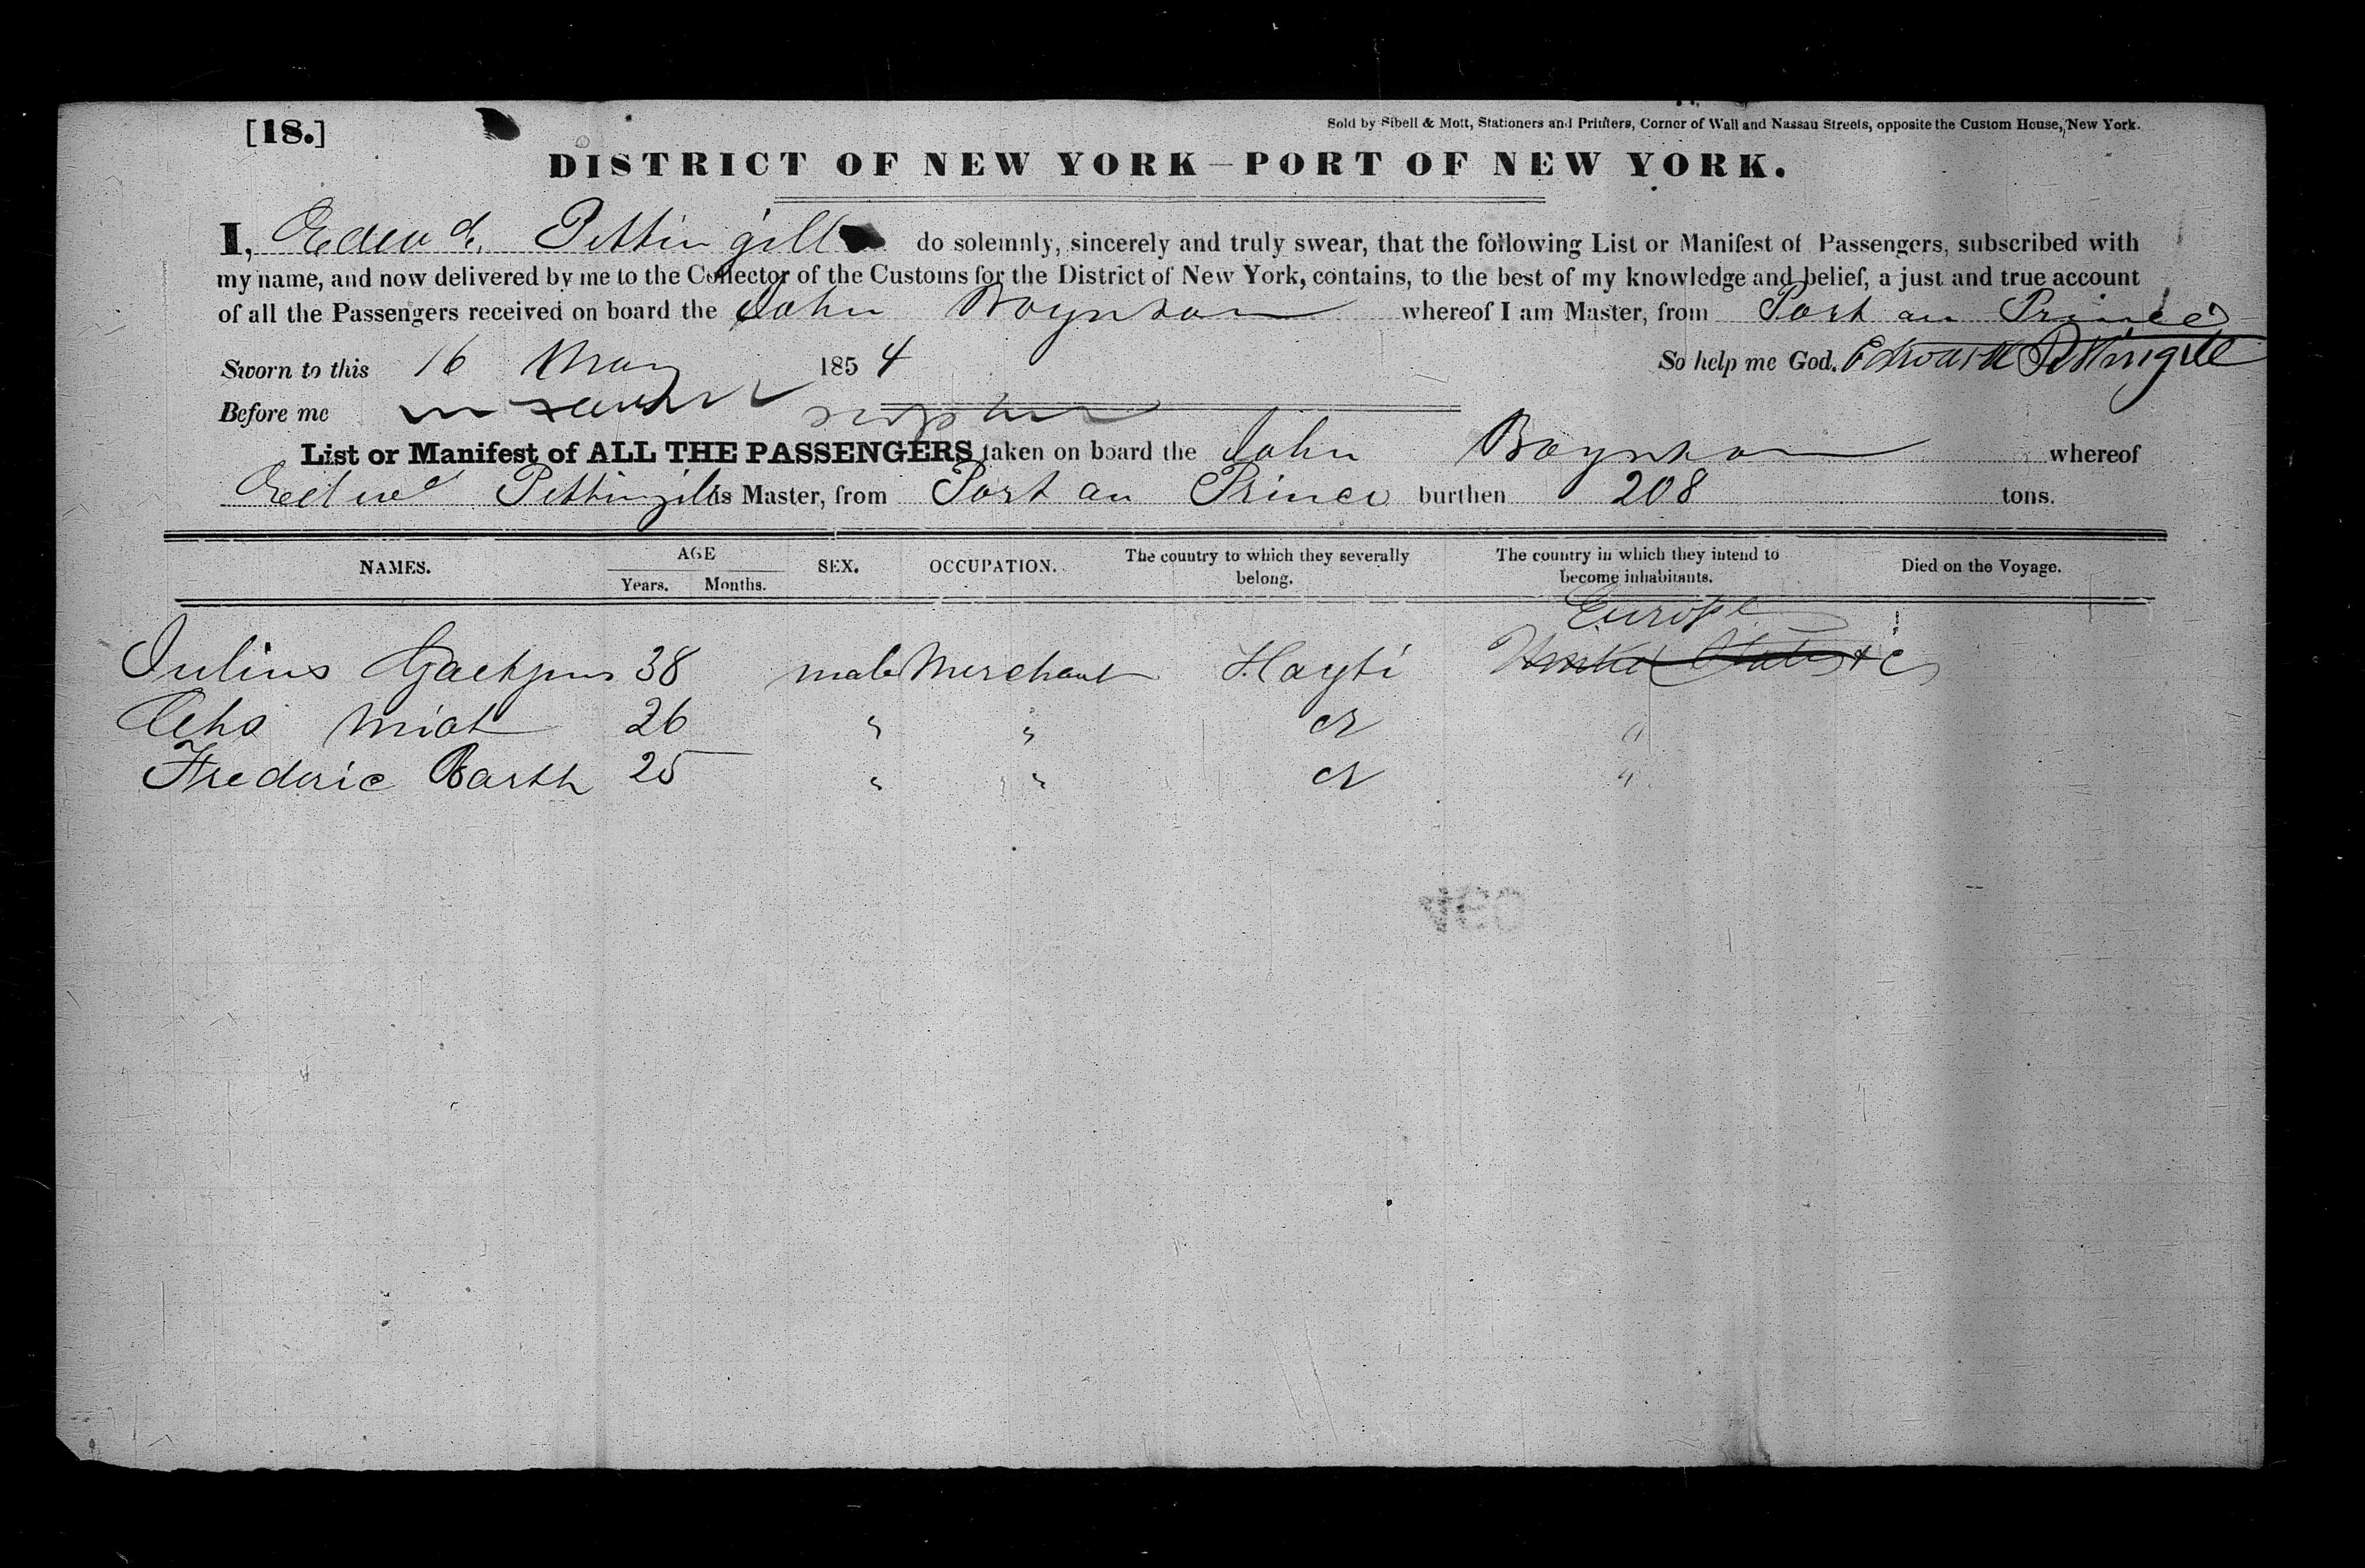 [18.]
Sold by Sibell & Mott, Stationers and Printers, Corner of Wall and Nassau Streets, opposite the Custom House, New York.
DISTRICT OF NEW YORK—PORT OF NEW YORK.
I, Edwd. Pettingill do solemnly, sincerely and truly swear, that the following List or Manifest of Passengers, subscribed with
my name, and now delivered by me to the Collector of the Customs for the District of New York, contains, to the best of my knowledge and belief, a just and true account
of all the Passengers received on board the John Boynton whereof I am Master, from Port au Prince
Sworn to this 16 May 1854 So help me God. Edward Pettingill
Before me
List or Manifest of ALL THE PASSENGERS taken on board the John Boynton whereof
Edwd Pettingill is Master, from Port au Prince burthen 208 tons.
NAMES. AGE SEX. OCCUPATION. The country to which they severally belong. The country in which they intend to become inhabitants. Died on the Voyage.
Years. Months.
Europe
Julius 38 male Merchant Hayti United States &c
Miot 26 " " " "
Frederic Barth 25 " " " "